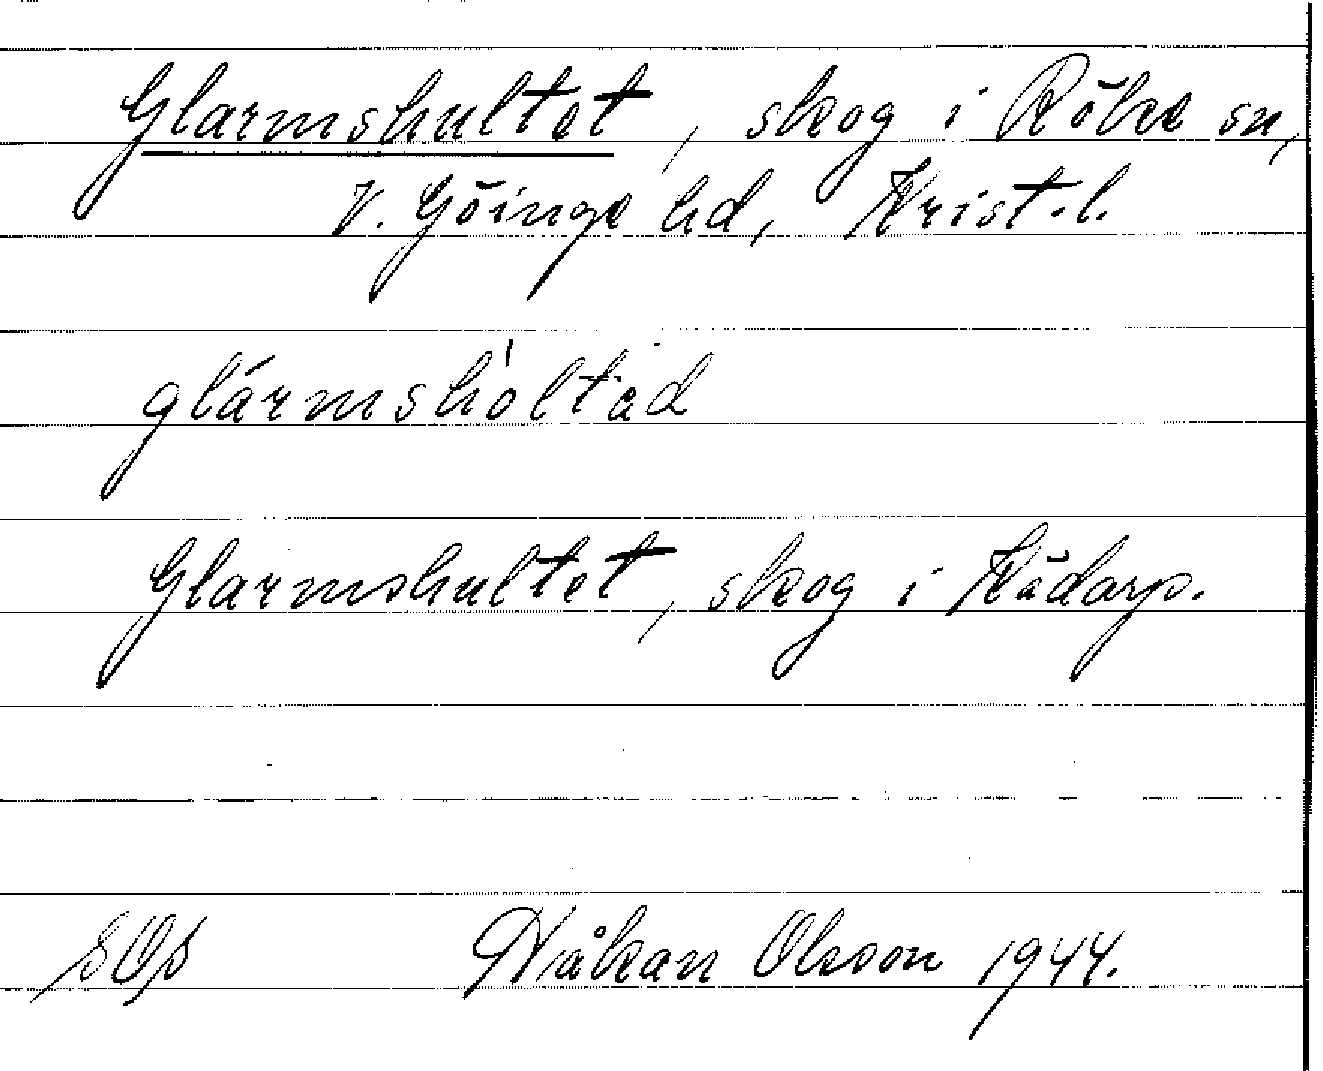 Glarmshultet, skog i Röke sn,
V. Göinge hd, Krist.l.
glármshòltad
Glarmshultet, skog i Kådarp.
Håkan Olsson 1944.